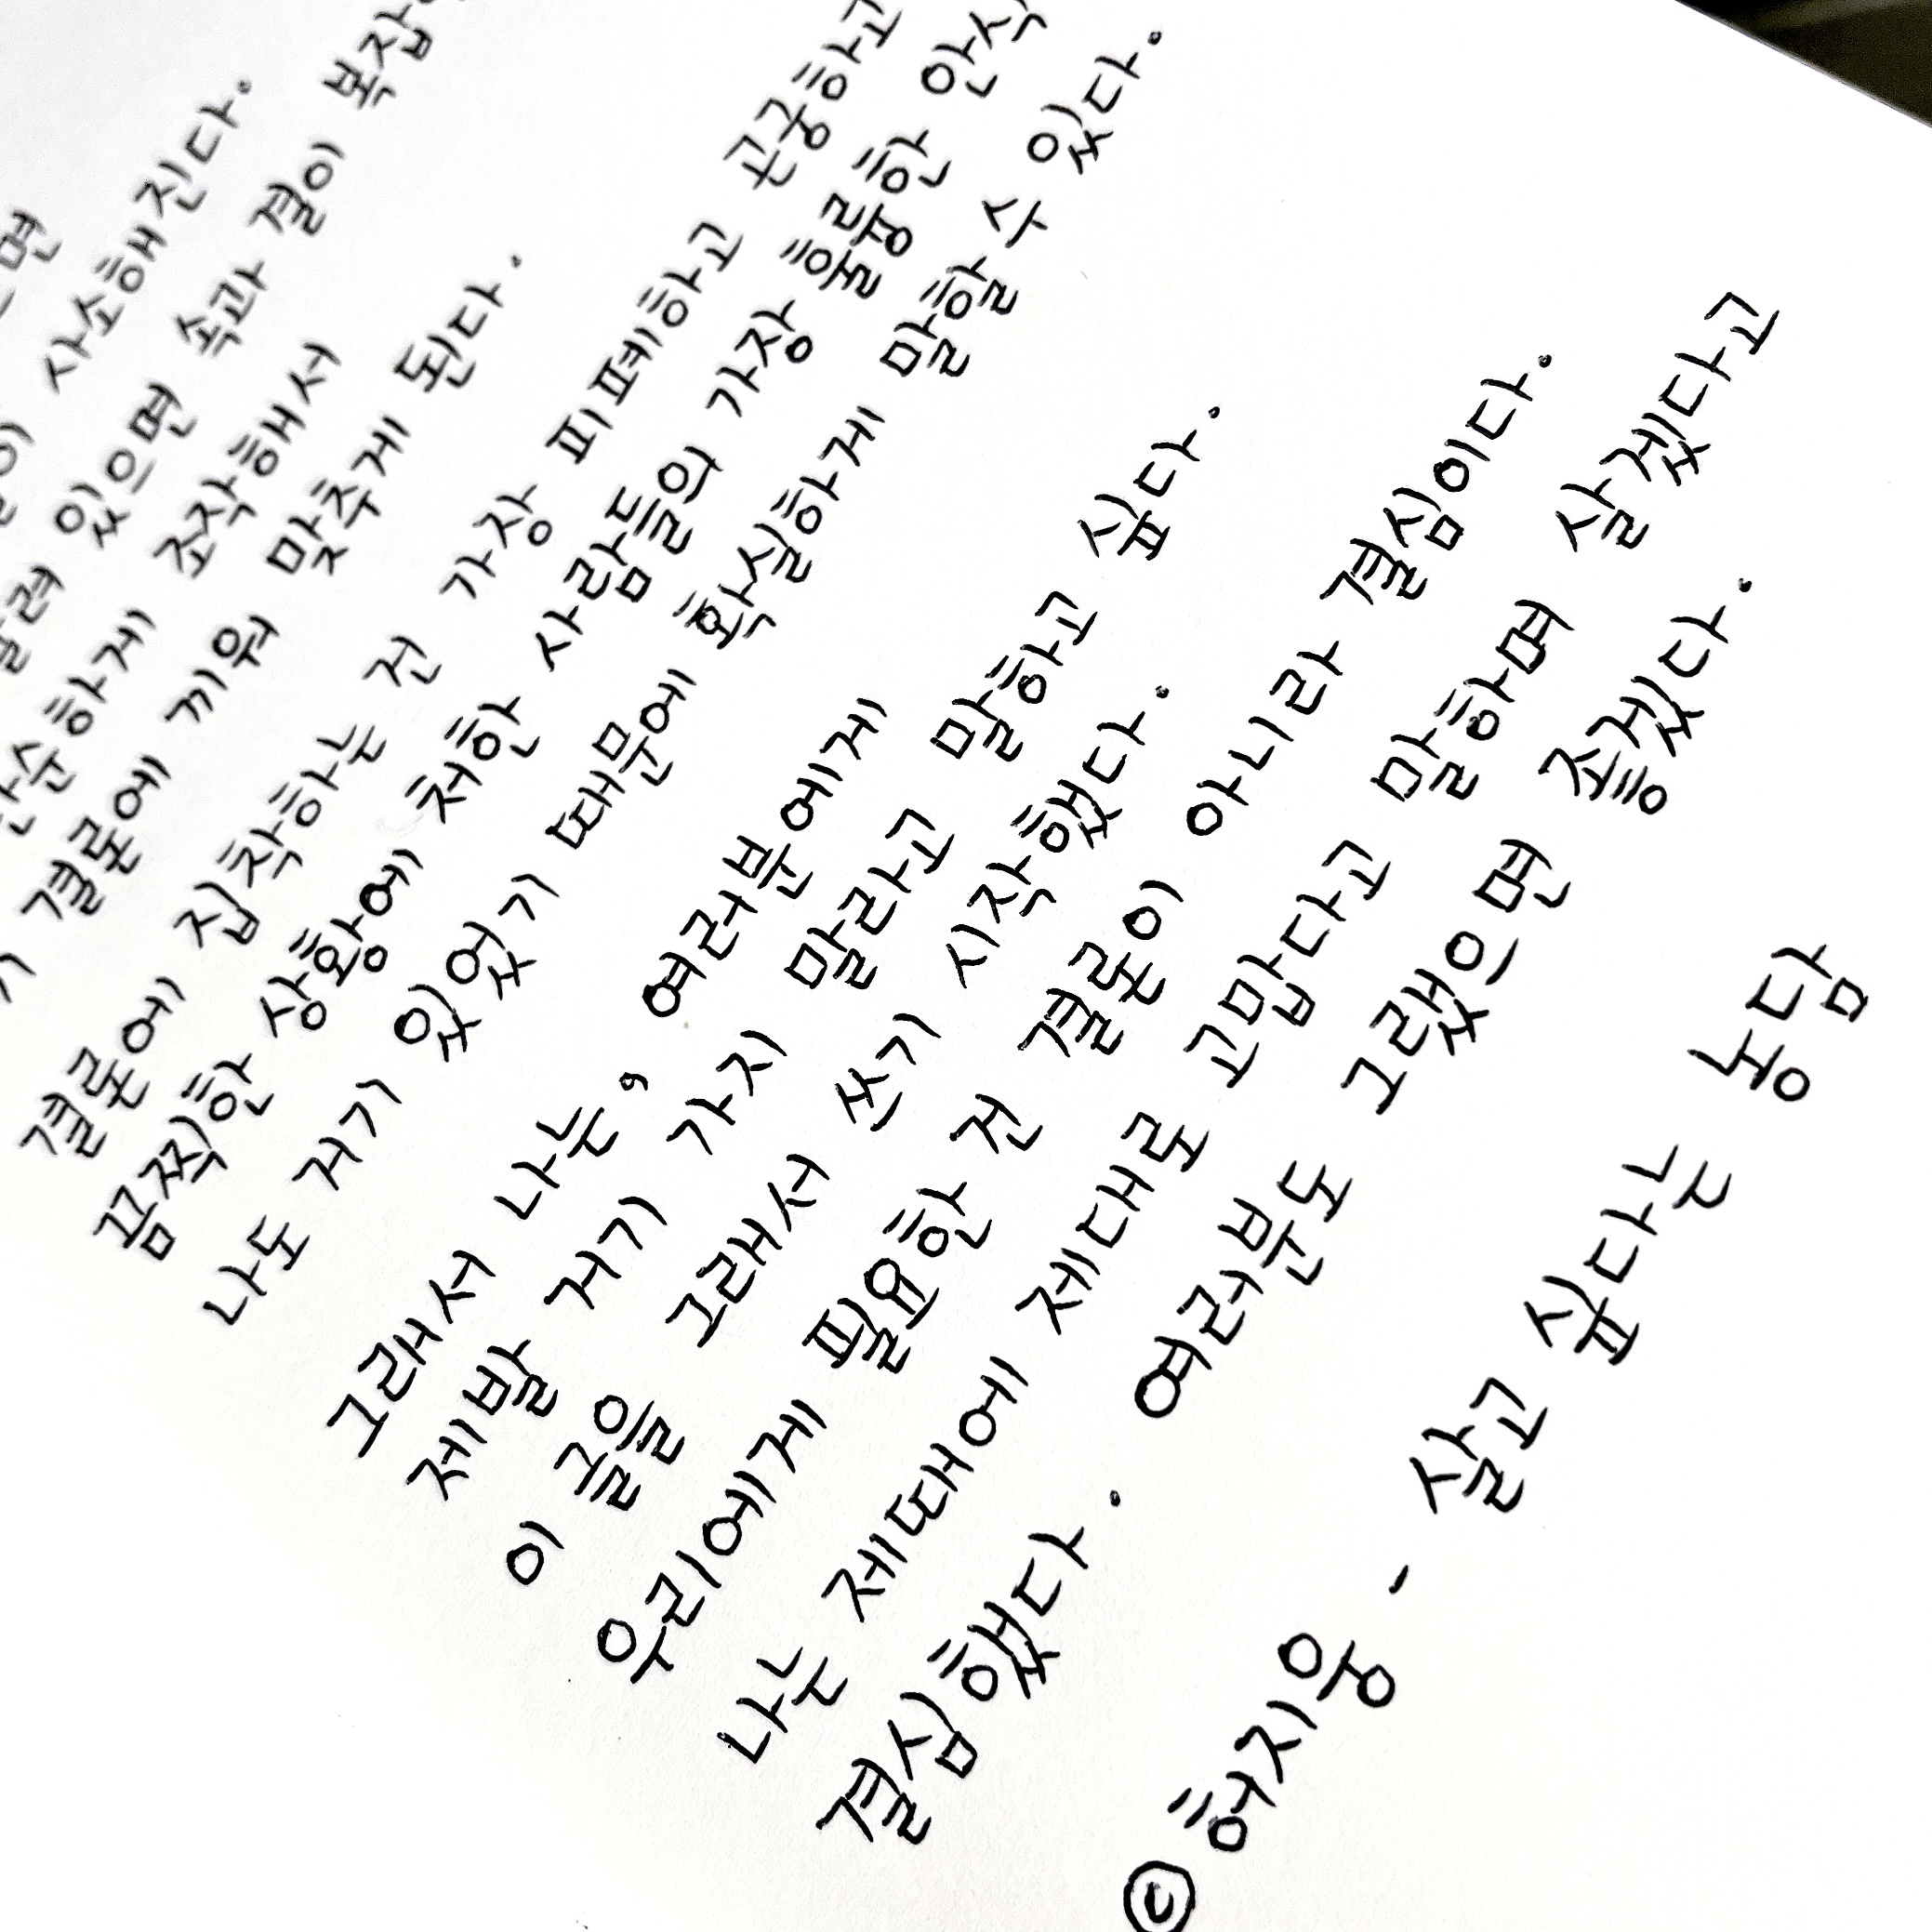 면
사소해진다.
있으면 속과 결이
순하게 조작해서
결론에 끼워 맞추게 된다.
결론에 집착하는 건 가장 피폐하고 곤궁하고
끔찍한 상황에 처한 사람들의 가장 흉흉한 안식
나도 거기 있었기 때문에 확실하게 말할 수 있다.
그래서 나는, 여러분에게
제발 거기 가지 말라고 말하고 싶다.
이 글을 그래서 쓰기 시작했다.
우리에게 필요한 건 결론이 아니라 결심이다.
나는 제때에 제대로 고맙다고 말하며 살겠다고
결심했다. 여러분도 그랬으면 좋겠다.
© 허지웅 - 살고 싶다는 농담